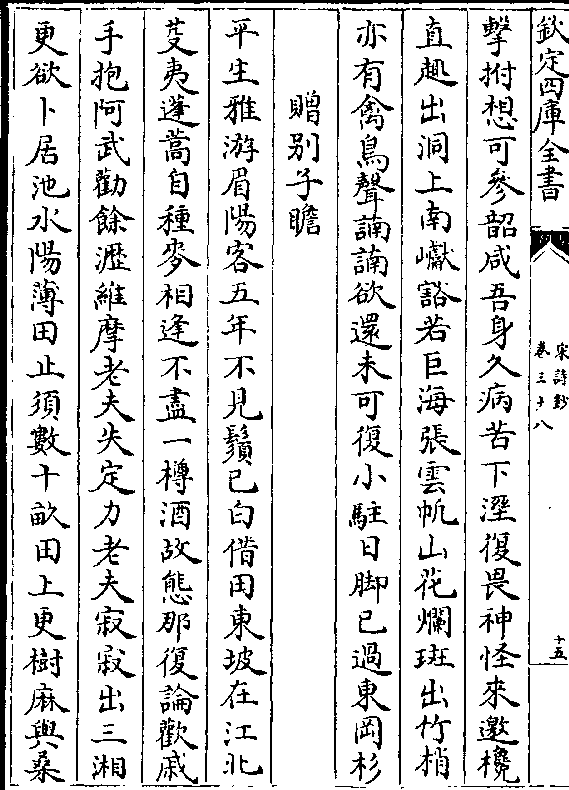 欽定四庫全書
宋詩鈔
卷三十八
十五
擊拊想可參韶咸吾身久病苦下溼復畏神怪來邀欃
直趣出洞上南巘豁若巨海張雲帆山花爛斑出竹梢
亦有禽鳥聲諵諵欲還未可復小駐日脚已過東岡杉
贈别子瞻
平生雅游眉陽客五年不見鬚已白借田東坡在江北
芟夷蓬蒿自種麥相逢不盡一樽酒故態那復論歡戚
手抱阿武勸餘瀝維摩老夫失定力老夫寂寂出三湘
更欲卜居池水陽薄田止須數十畝田上更樹麻與桑